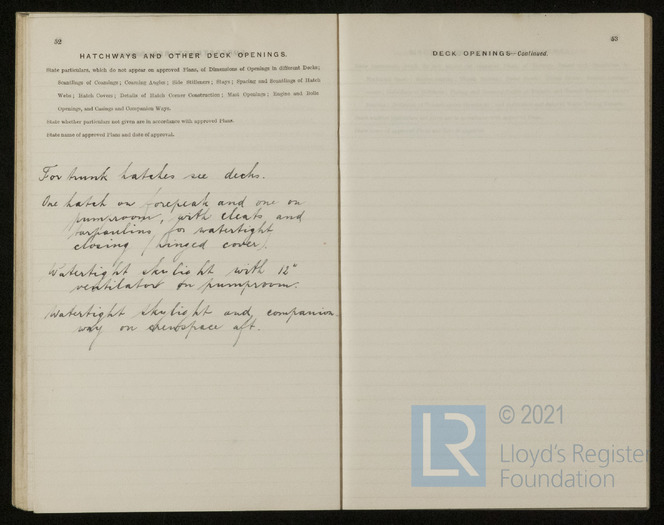 52
HATCHWAYS AND OTHER DECK OPENINGS.
State particulars, which do not appear on approved Plans, of Dimensions of Openings in different Decks;
Scantlings of Coamings; Coaming Angles; Side Stiffeners; Stays; Spacing and Scantlings of Hatch
Webs; Hatch Covers; Details of Hatch Corner Construction; Mast Openings; Engine and Boiler
Openings, and Casings and Companion Ways.
State whether particulars not given are in accordance with approved Plans.
State name of approved Plans and date of approval.
For trunk hatches see decks.
One hatch on forepeak and one on
pumproom, with cleats and
tarpaulins for watertight
closing (hinged cover).
Watertight skylight with 12"
ventilator on pumproom.
Watertight skylight and companion
way on crewspace aft.
53
DECK OPENINGS—Continued.
LR
© 2021
Lloyd's Register
Foundation